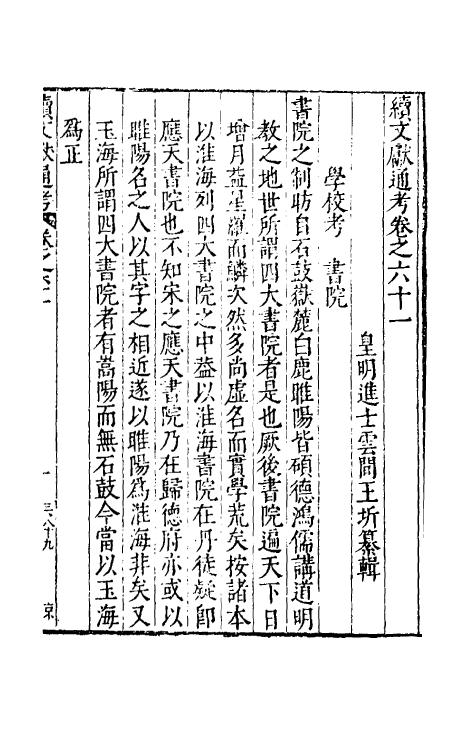 續文獻通考卷之六十一
皇明進士雲間王圻纂輯
學校考 書院
書院之制昉自石鼓嶽麓白鹿睢陽皆碩德鴻儒講道明
教之地世所謂四大書院者是也厥後書院遍天下日
增月益星羅而鱗次然多尚虛名而實學荒矣按諸本
以淮海列四大書院之中葢以淮海書院在丹徒疑卽
應天書院也不知宋之應天書院乃在歸德府亦或以
睢陽名之人以其字之相近遂以睢陽爲淮海非矣又
玉海所謂四大書院者有嵩陽而無石鼓今當以玉海
爲正
續文獻通考 卷之六十一
一
三八十九